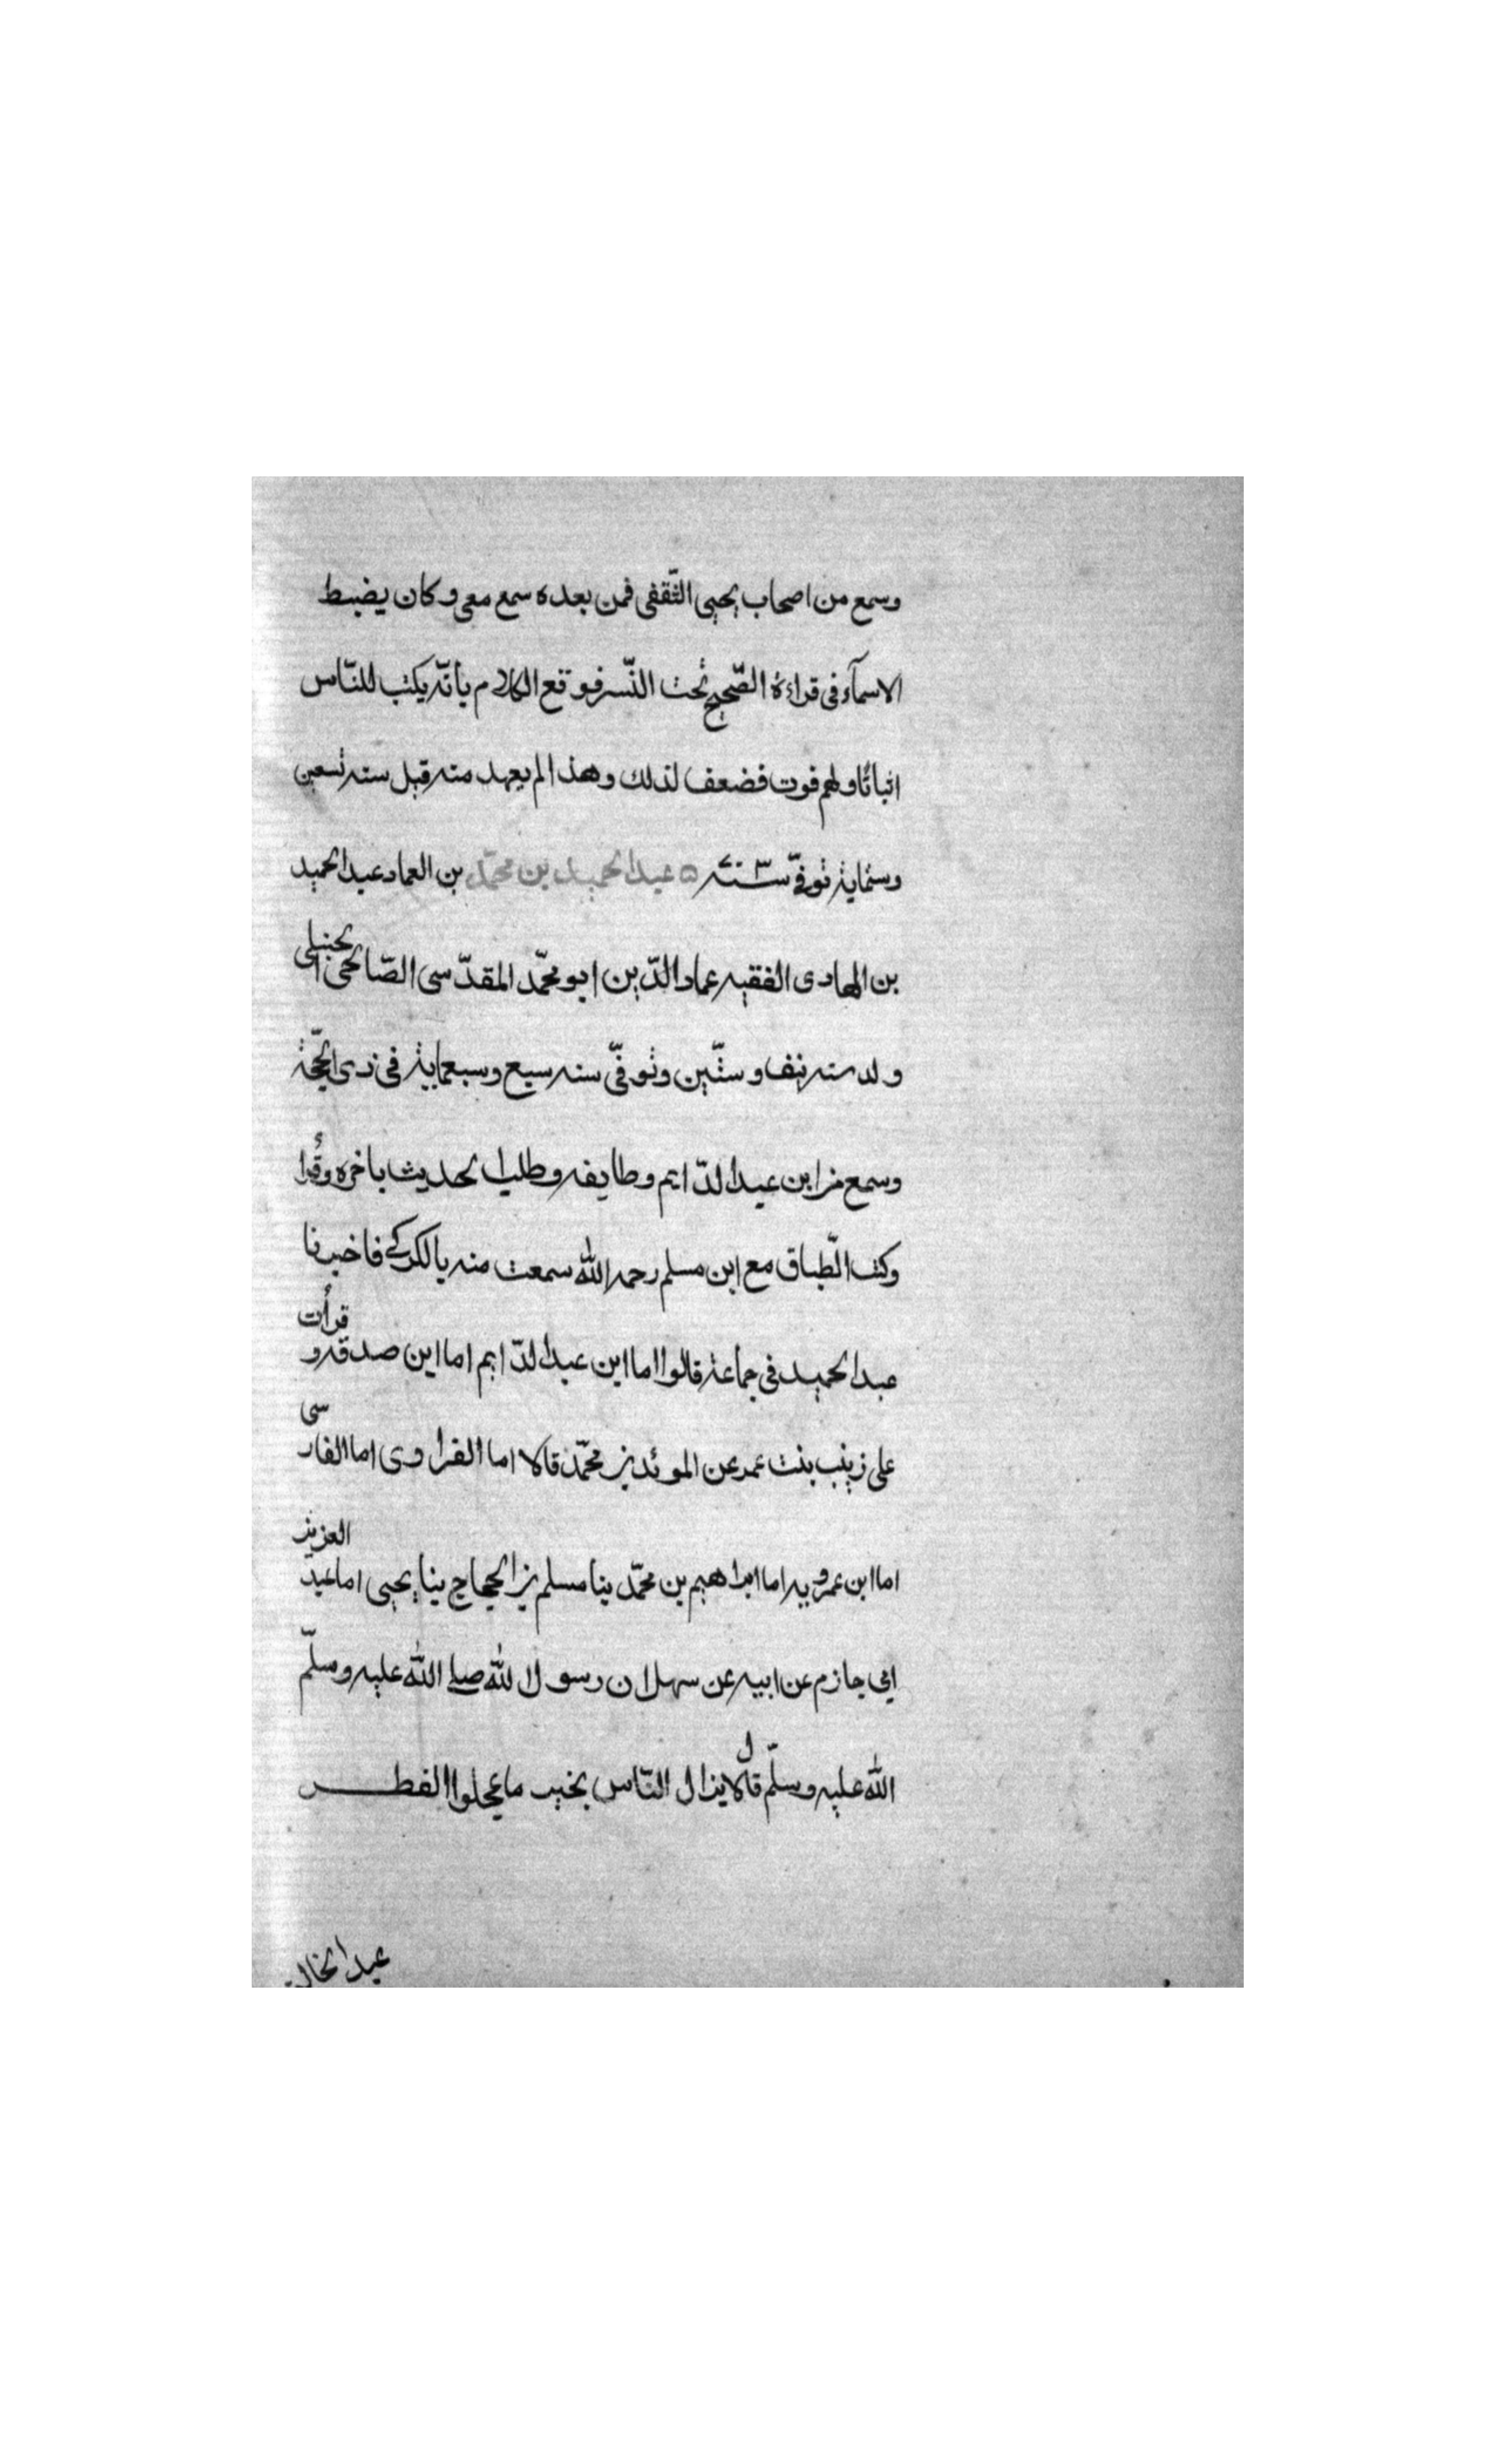 وسمع من اصحاب يحيى الثّقفى فمن بعده سمع معى وكان يضبط
الاسمآء فى قراءة الصّحيح تحت النّسر فوقع الكلام بأنّه يكتب للنّاس
اثباتًا ولهم فوت فضعف لذلك وهذا لم يعهد منه قبل سنه تسعين
وستماية توفّى سنة ٧٠٣ ه عبد الحميد بن محمّد بن العماد عبد الحميد
بن الهادى الفقيه عماد الدّين ابو محمّد المقدّسى الصّالحى الحنبلى
ولد سنه نيف وستّين وتوفّى سنه سبع وسبعماية فى ذى الحجّة
وسمع من ابن عبد الدّايم وطايفه وطلب الحديث باخره وقُرأ
وكتب الطّباق مع ابن مسلم رحمه الله سمعت منه بالكرك فاخبرنا
عبد الحميد فى جماعة قالوا اما ابن عبد الدّايم اما ابن صدقه وقرأت
على زينب بنت عمر عن الموئد بن محمّد قالا اما الفراوى اما الفارسى
اما ابن عمرويه اما ابراهيم بن محمّد ينا مسلم بن الحجاج ينا يحيى اما عبد العزيز
ابى حازم عن ابيه عن سهل ان رسول الله صلى الله عليه وسلّم
الله عليه وسلّم قال لا يزال النّاس بخير ما عجلوا الفطر
عبد الخالق